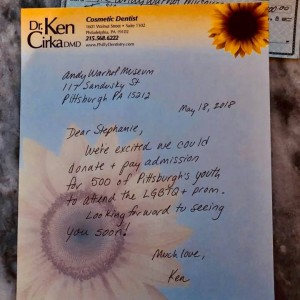 Dr. Ken
Cirka DMD
Cosmetic Dentist
1601 Walnut Street • Suite 1302
Philadelphia, PA 19102
215.568.6222
www.PhillyDentistry.com
Andy Warhol Museum
117 Sandusky St
Pittsburgh PA 15212
May 18, 2018
Dear Stephanie,
We're excited we could
donate + pay admission
for 500 of Pittsburgh's youth
to attend the LGBTQ+ prom.
Looking forward to seeing
you soon!
Much love,
Ken